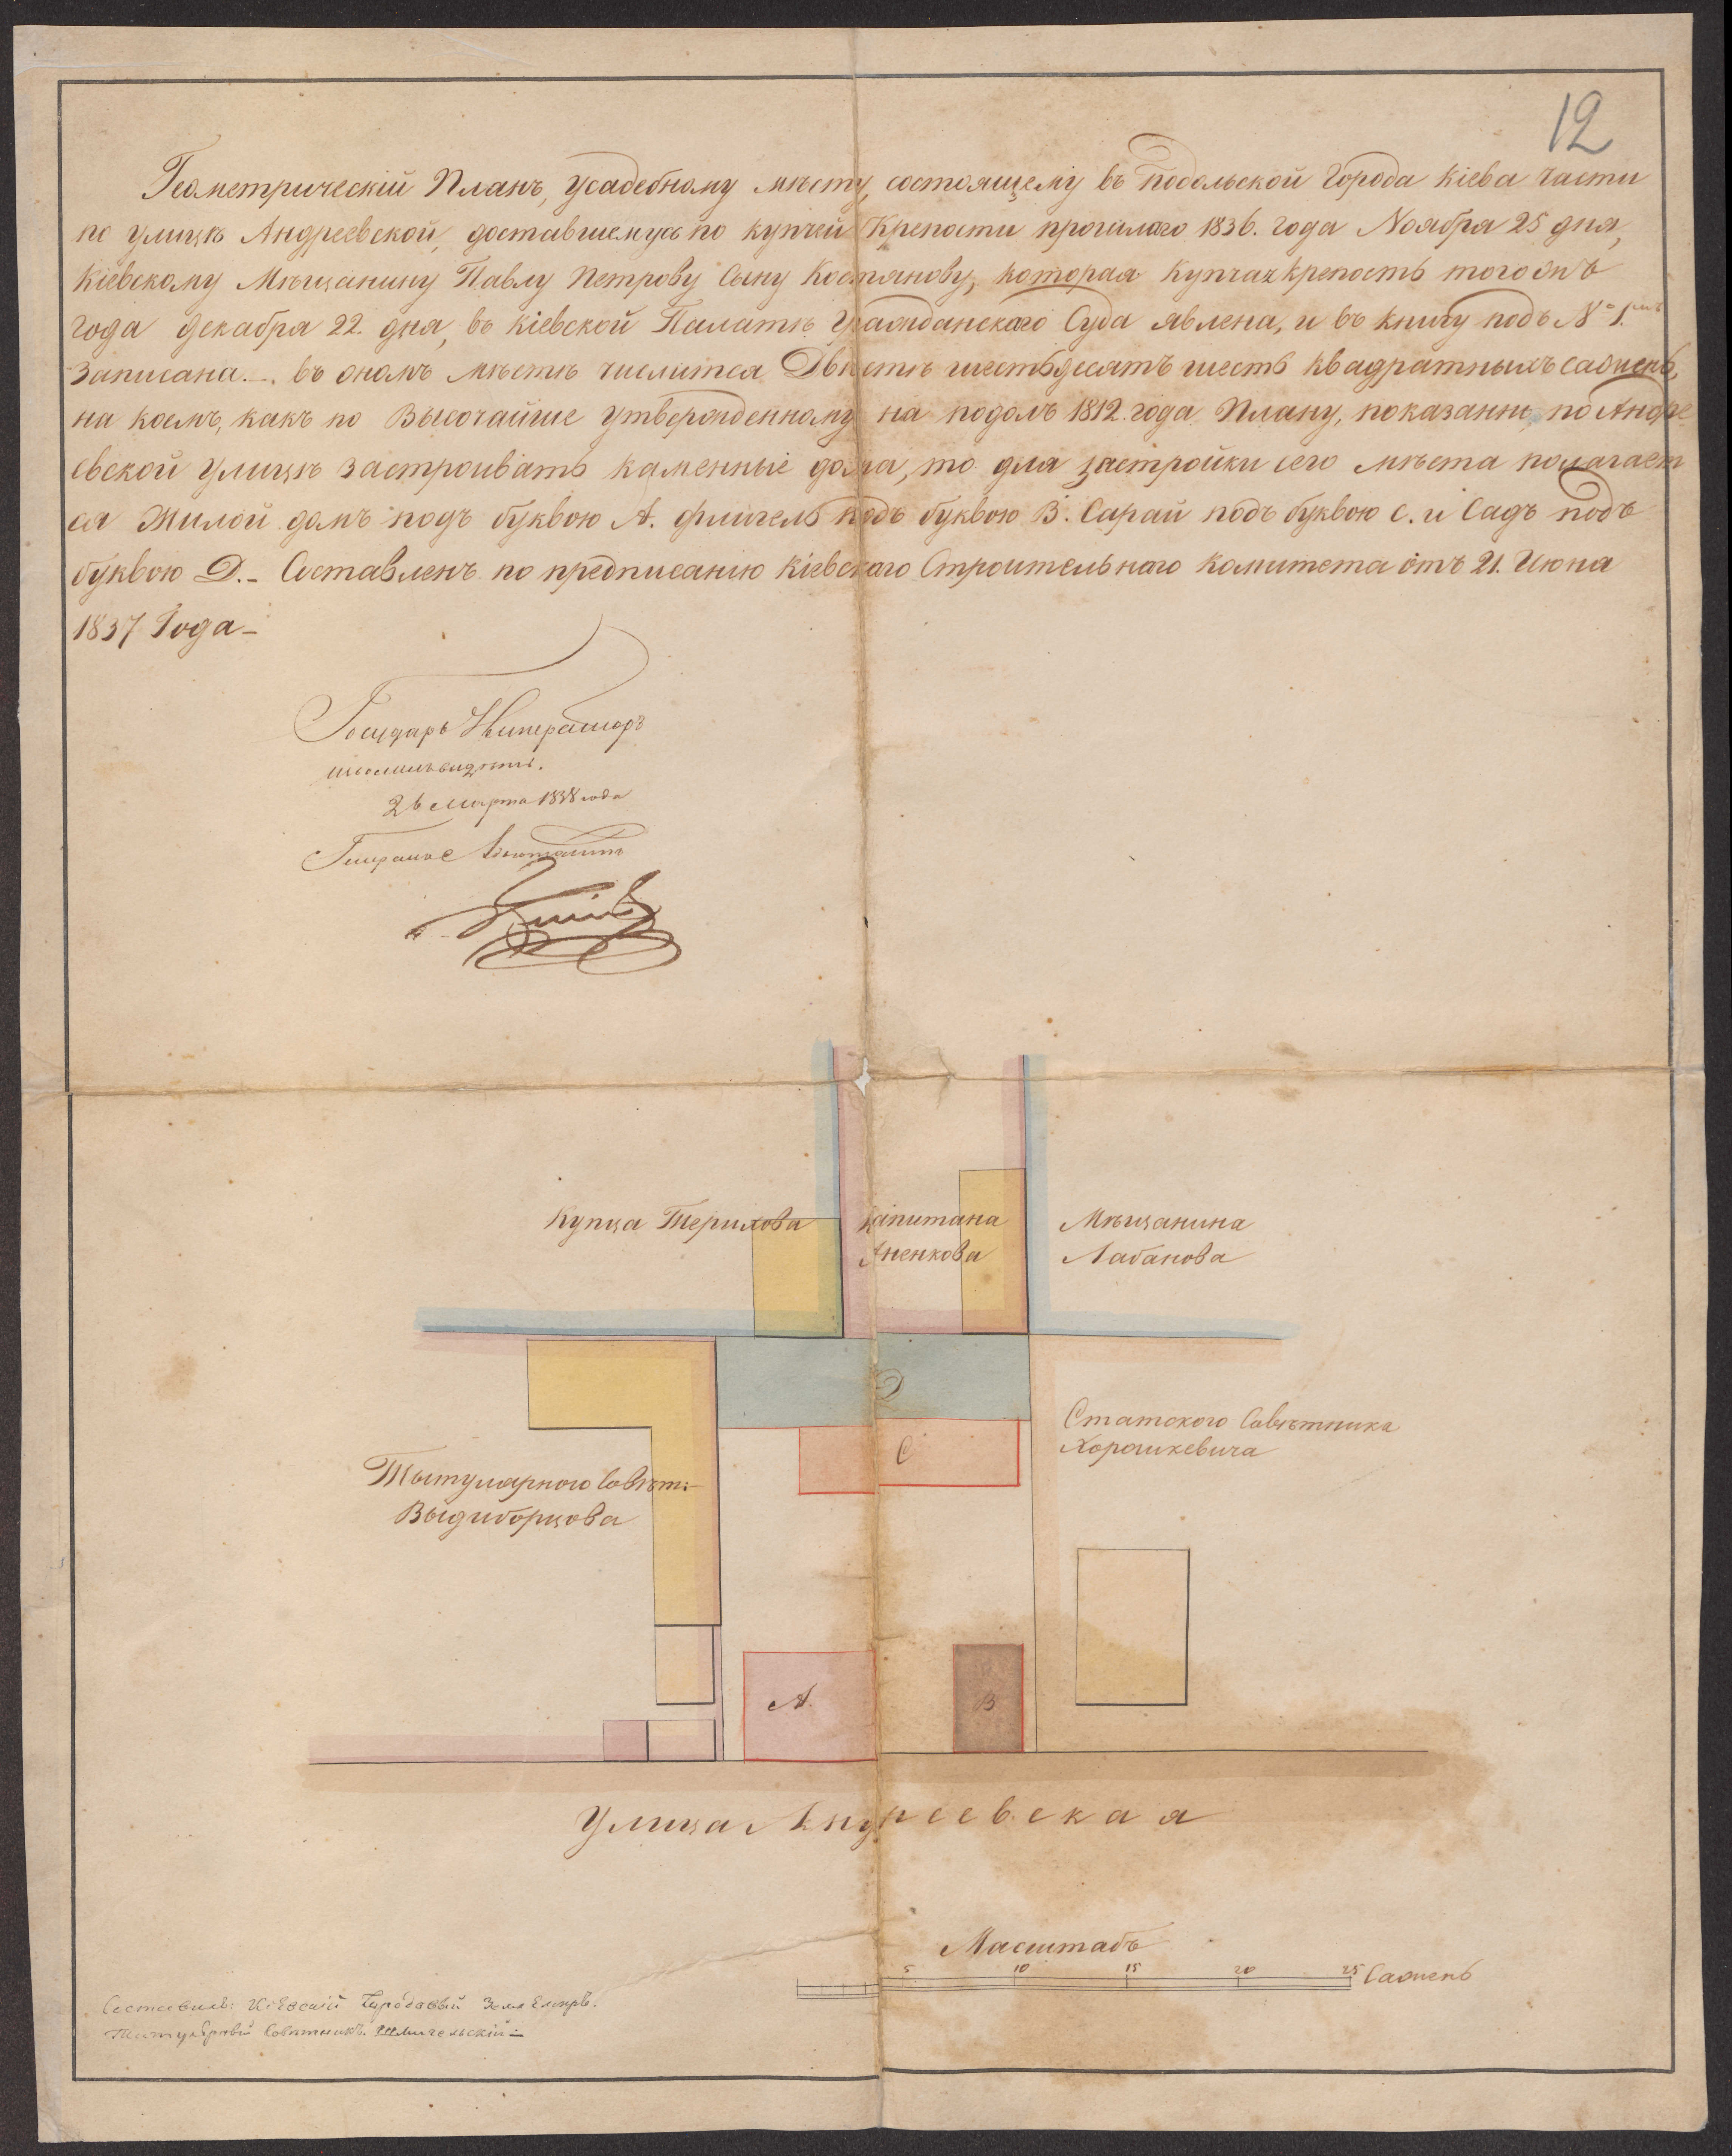 12
Геометрическій Планъ, усадебному мѣсту, состоящему въ Подольской Города Кіева части
по улицѣ Андреевской, доставшемусь по купчей Крепости прошлаго 1836. года Ноября 25 дня,
Кіевскому Мѣщанину Павлу Петрову Сыну Костянову, которая Купчая крепость того
года декабря 22. дня, въ Кіевской Палатѣ Гражданскаго Суда явлена, и въ книгу подъ № 1.
Записана. въ ономъ мѣстѣ числится Двѣстѣ шестьдесятъ шесть квадратныхъ саженъ,
на коемъ, какъ по Высочайше утвержденному на подолъ 1812. года Плану, показанно по Андре
евской улицѣ застроивать каменные дома, то для застройки сего мѣста полагает
ся Жилой домъ подъ буквою А. флигель подъ буквою В. Сарай подъ буквою С. и Садъ подъ
буквою D. Составленъ по предписанію Кіевскаго Строительнаго Комитета отъ 21. Июня
1837 Года
Государь Императоръ
26 Марта 1838 года
Генералъ Адъютантъ
Купца Терихова
Капитана
Аненкова
Мѣщанина
Лабанова
D
Статского Совѣтника
Хорошкевича
С
Тытулярного Совѣт:
Выдиборцова
А.
В
Улица Андреевская
Масштабъ
5 10 15 20 25 Саженъ
Составилъ: Кіевскій Городовый Землемѣръ.
Титулярный Совѣтникъ Шмигельскій